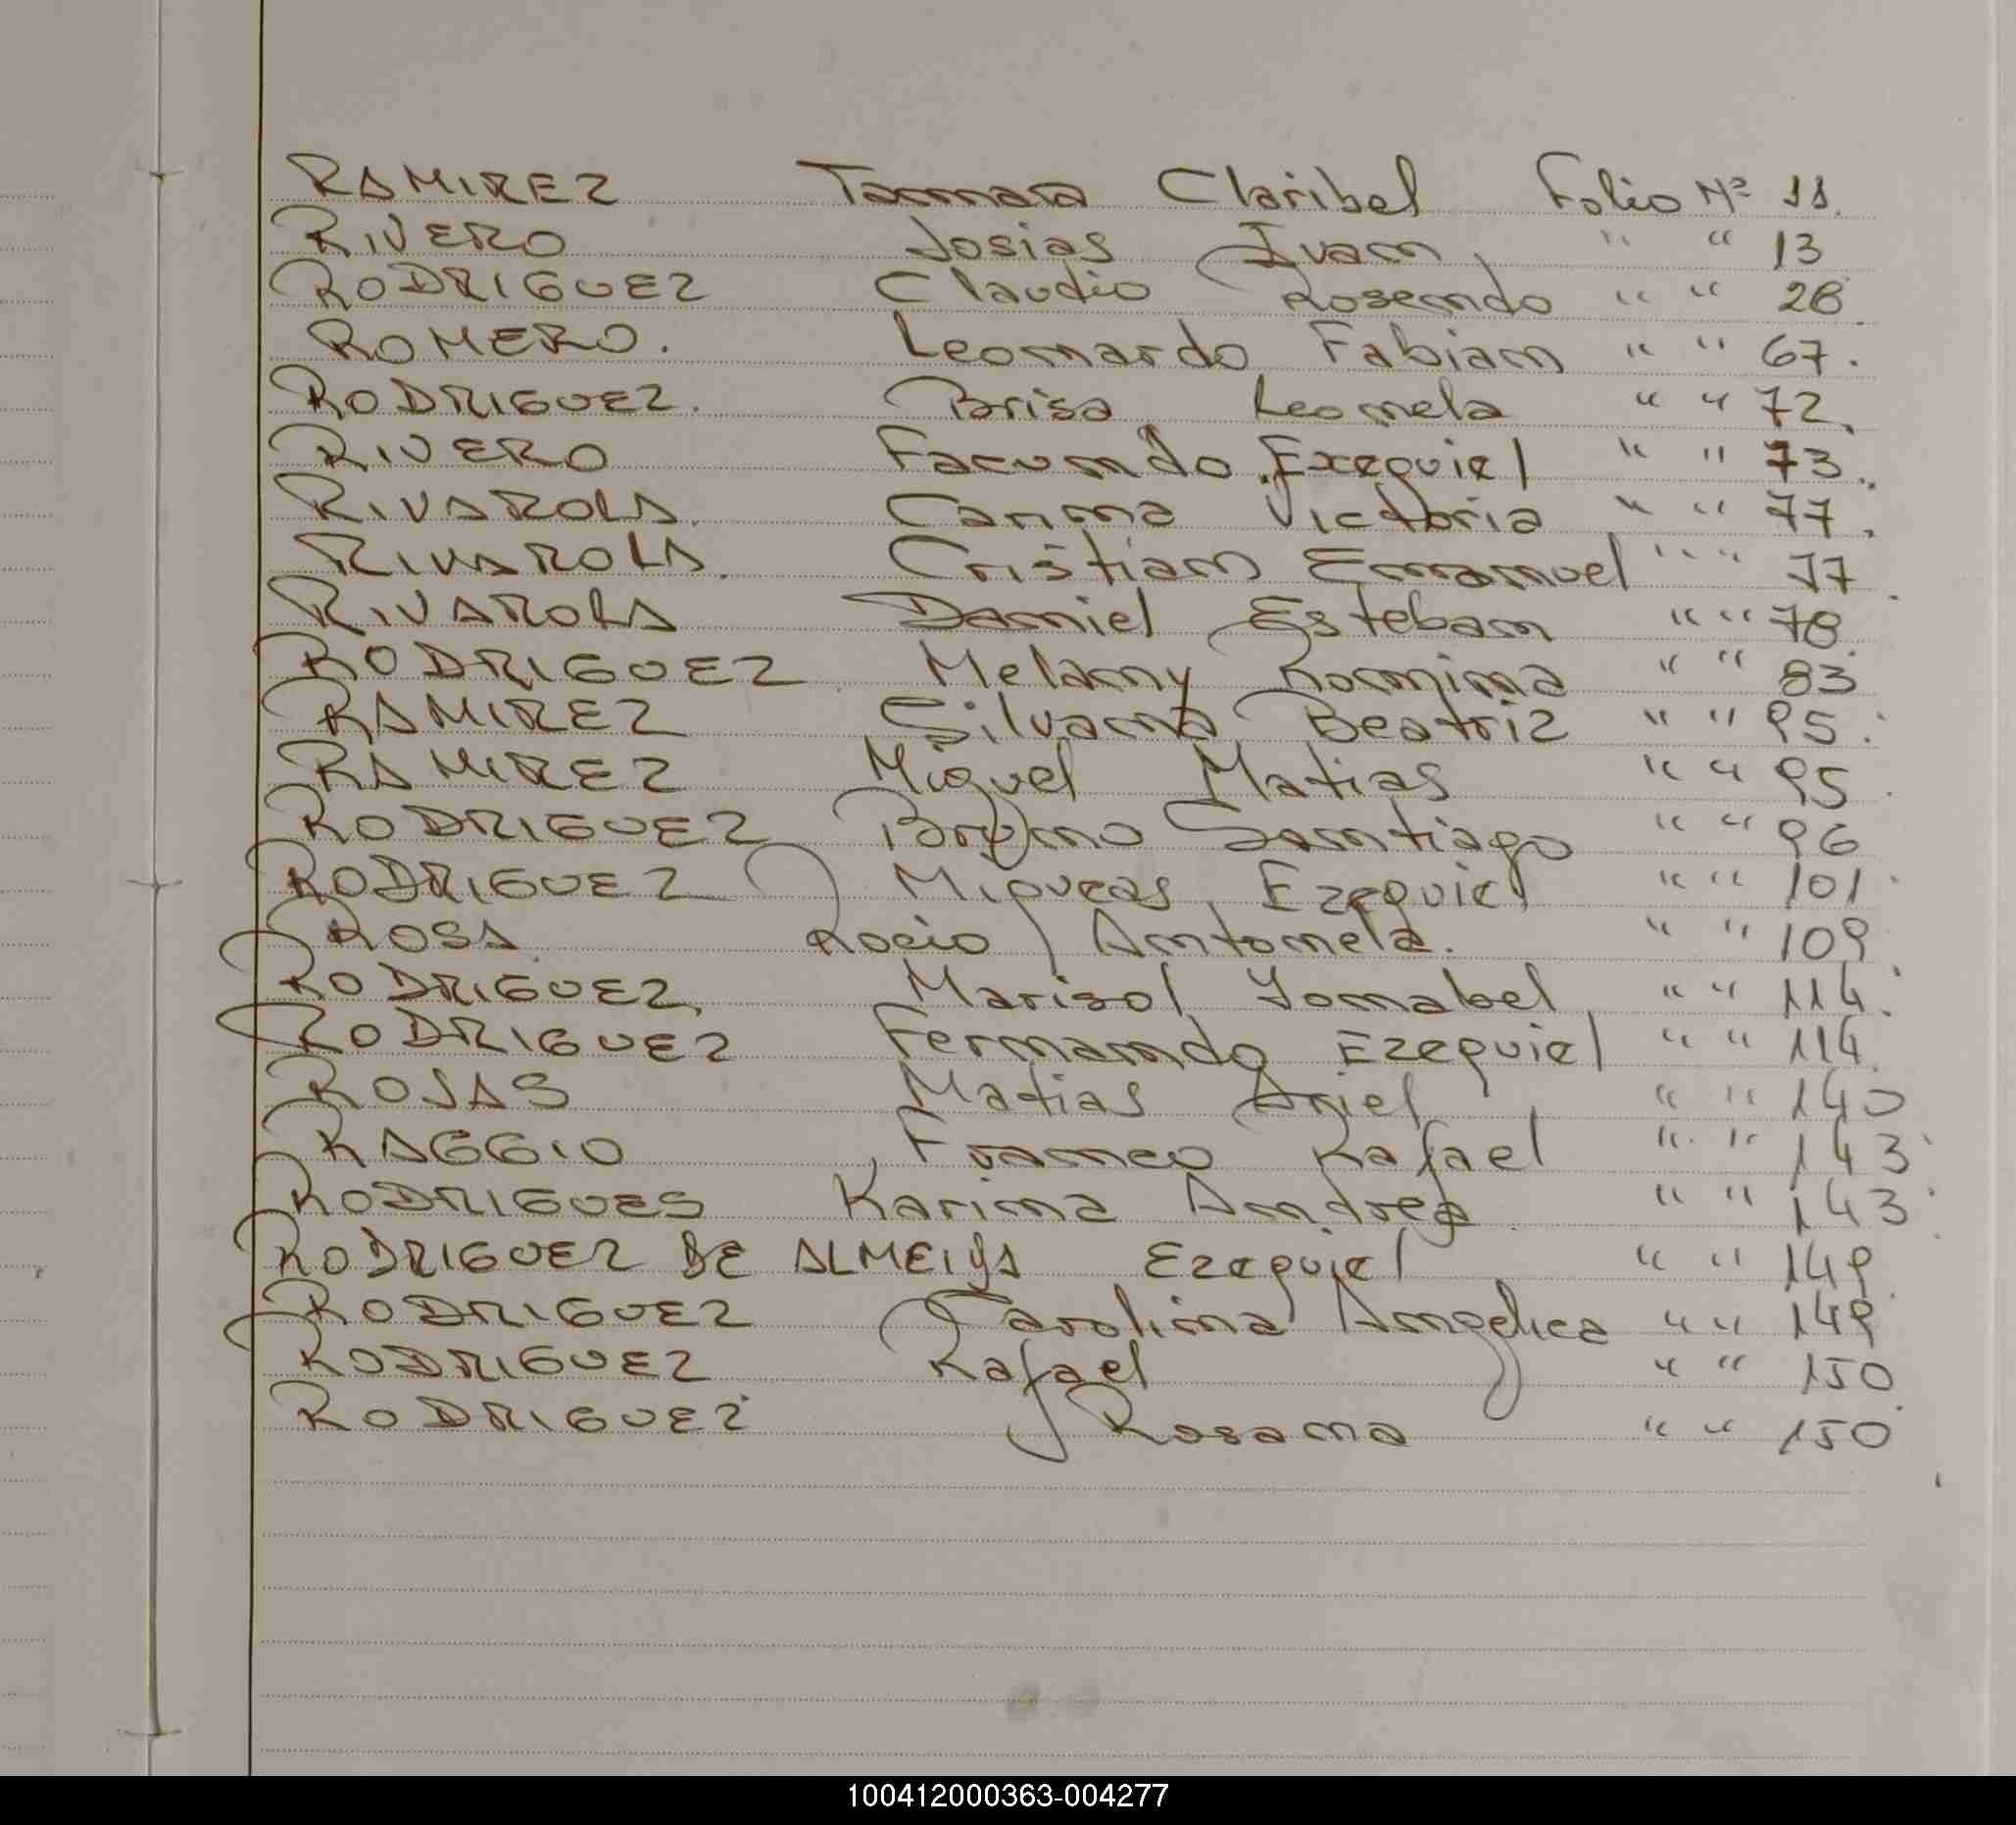 RAMIREZ Tamara Claribel Folio Nº 11.
RIVERO Josias Ivan " " 13
RODRIGUEZ Claudio Rosendo " " 28
ROMERO. Leonardo Fabian " " 67.
RODRIGUEZ. Brisa Leonela " " 72.
RIVERO Facundo Exequiel " " 73.
RIVAROLA. Victoria " " 77.
RIVAROLA. Cristian Emanuel " " 77.
RIVAROLA Daniel Esteban " " 78.
RODRIGUEZ Melany Romina " " 83
RAMIREZ Silvana Beatriz " " 95.
RAMIREZ Miguel Matias " " 95.
RODRIGUEZ Bruno Santiago " " 96
RODRIGUEZ Miqueas Ezequiel " " 101.
ROSA Rocio Antonela. " " 109
RODRIGUEZ Marisol Yomabel " " 114.
RODRIGUEZ Fernando Ezequiel " " 114
ROJAS Matias Ariel " " 140
RAGGIO Franco Rafael " " 143
RODRIGUES Karina Andrea " " 143
RODRIGUEZ DE ALMEIDA Ezequiel " " 149
RODRIGUEZ Carolina Angelica " " 149
RODRIGUEZ Rafael " " 150
RODRIGUEZ Rosana " " 150
100412000363-004277